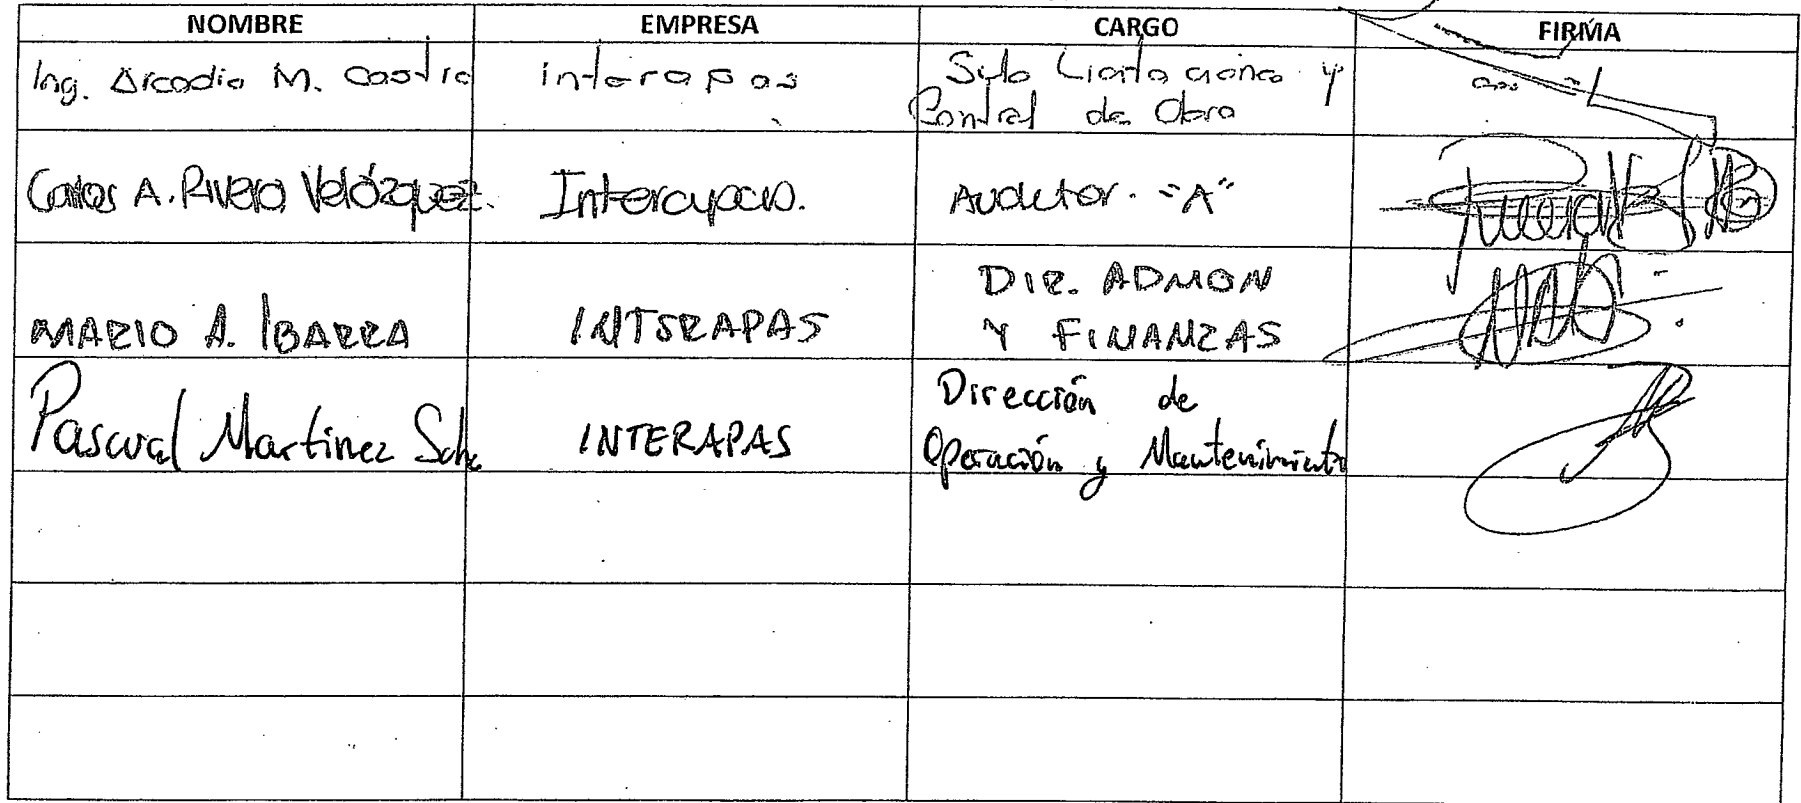 NOMBRE EMPRESA CARGO FIRMA
Ing. Arcadio M. Castro interapas y
Control de Obra
Carlos A. Rivera Velázquez. Interapas. Auditor. "A"
MARIO A. IBARRA INTERAPAS DIR. ADMON
Y FINANZAS
Pascual Martinez INTERAPAS Dirección de
Operación y Mantenimiento